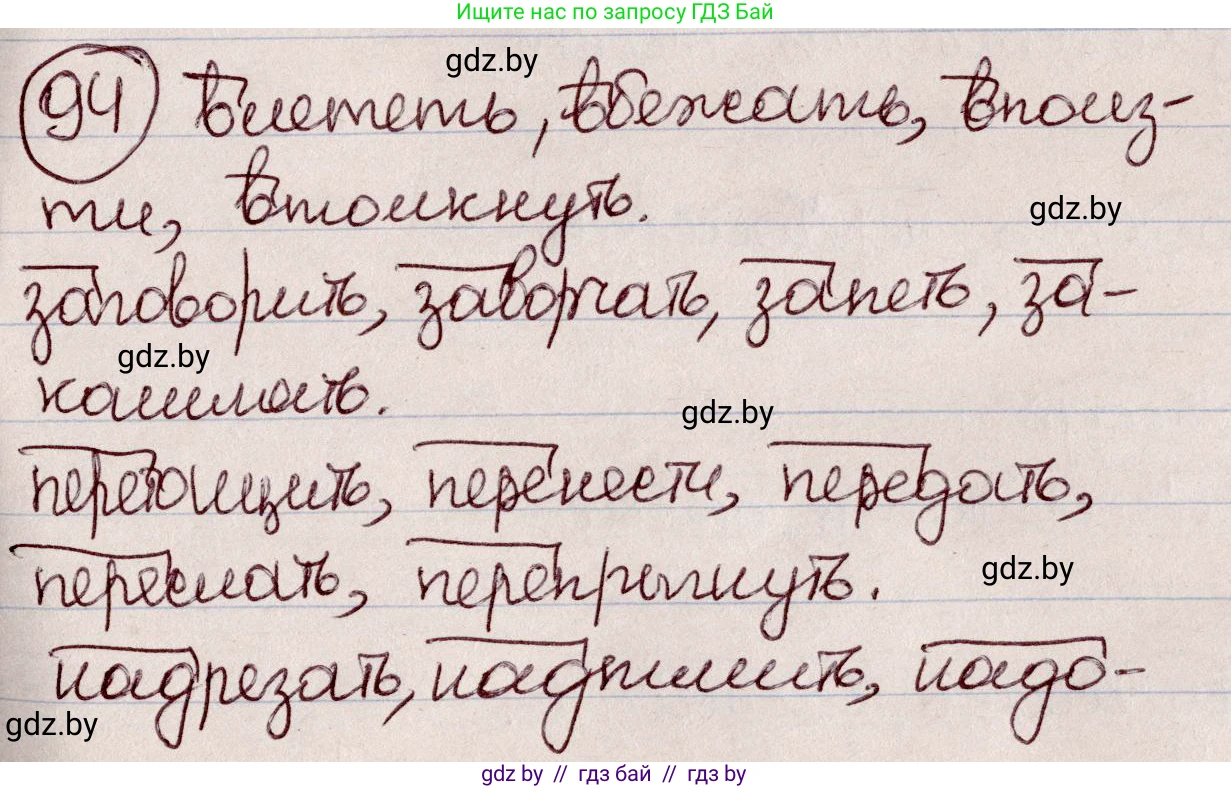 Ищите нас по запросу ГДЗ Бай
gdz.by
94 влететь, вбежать, вполз-
ти, втолкнуть.
gdz.by
заговорить, заворчать, запеть, за-
gdz.by
кашлять.
gdz.by
перетащить, перенести, передать,
переслать, перепрыгнуть.
gdz.by
надрезать, надпилить, надо-
gdz.by
gdz by // гдз бай // гдз by